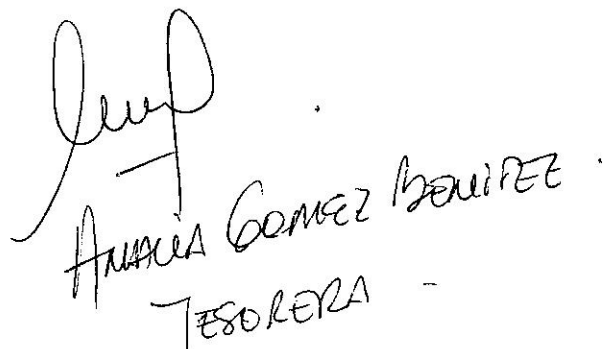 AMALIA GOMEZ BENITEZ.
TESORERA -